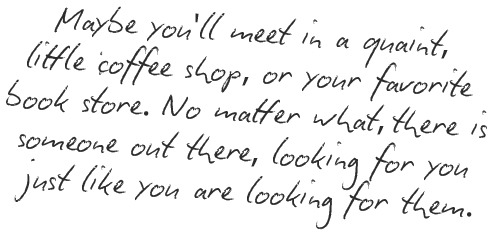 Maybe you'll meet in a quaint,
little coffee shop, or your favorite
book store. No matter what, there is
someone out there, looking for you
just like you are looking for them.